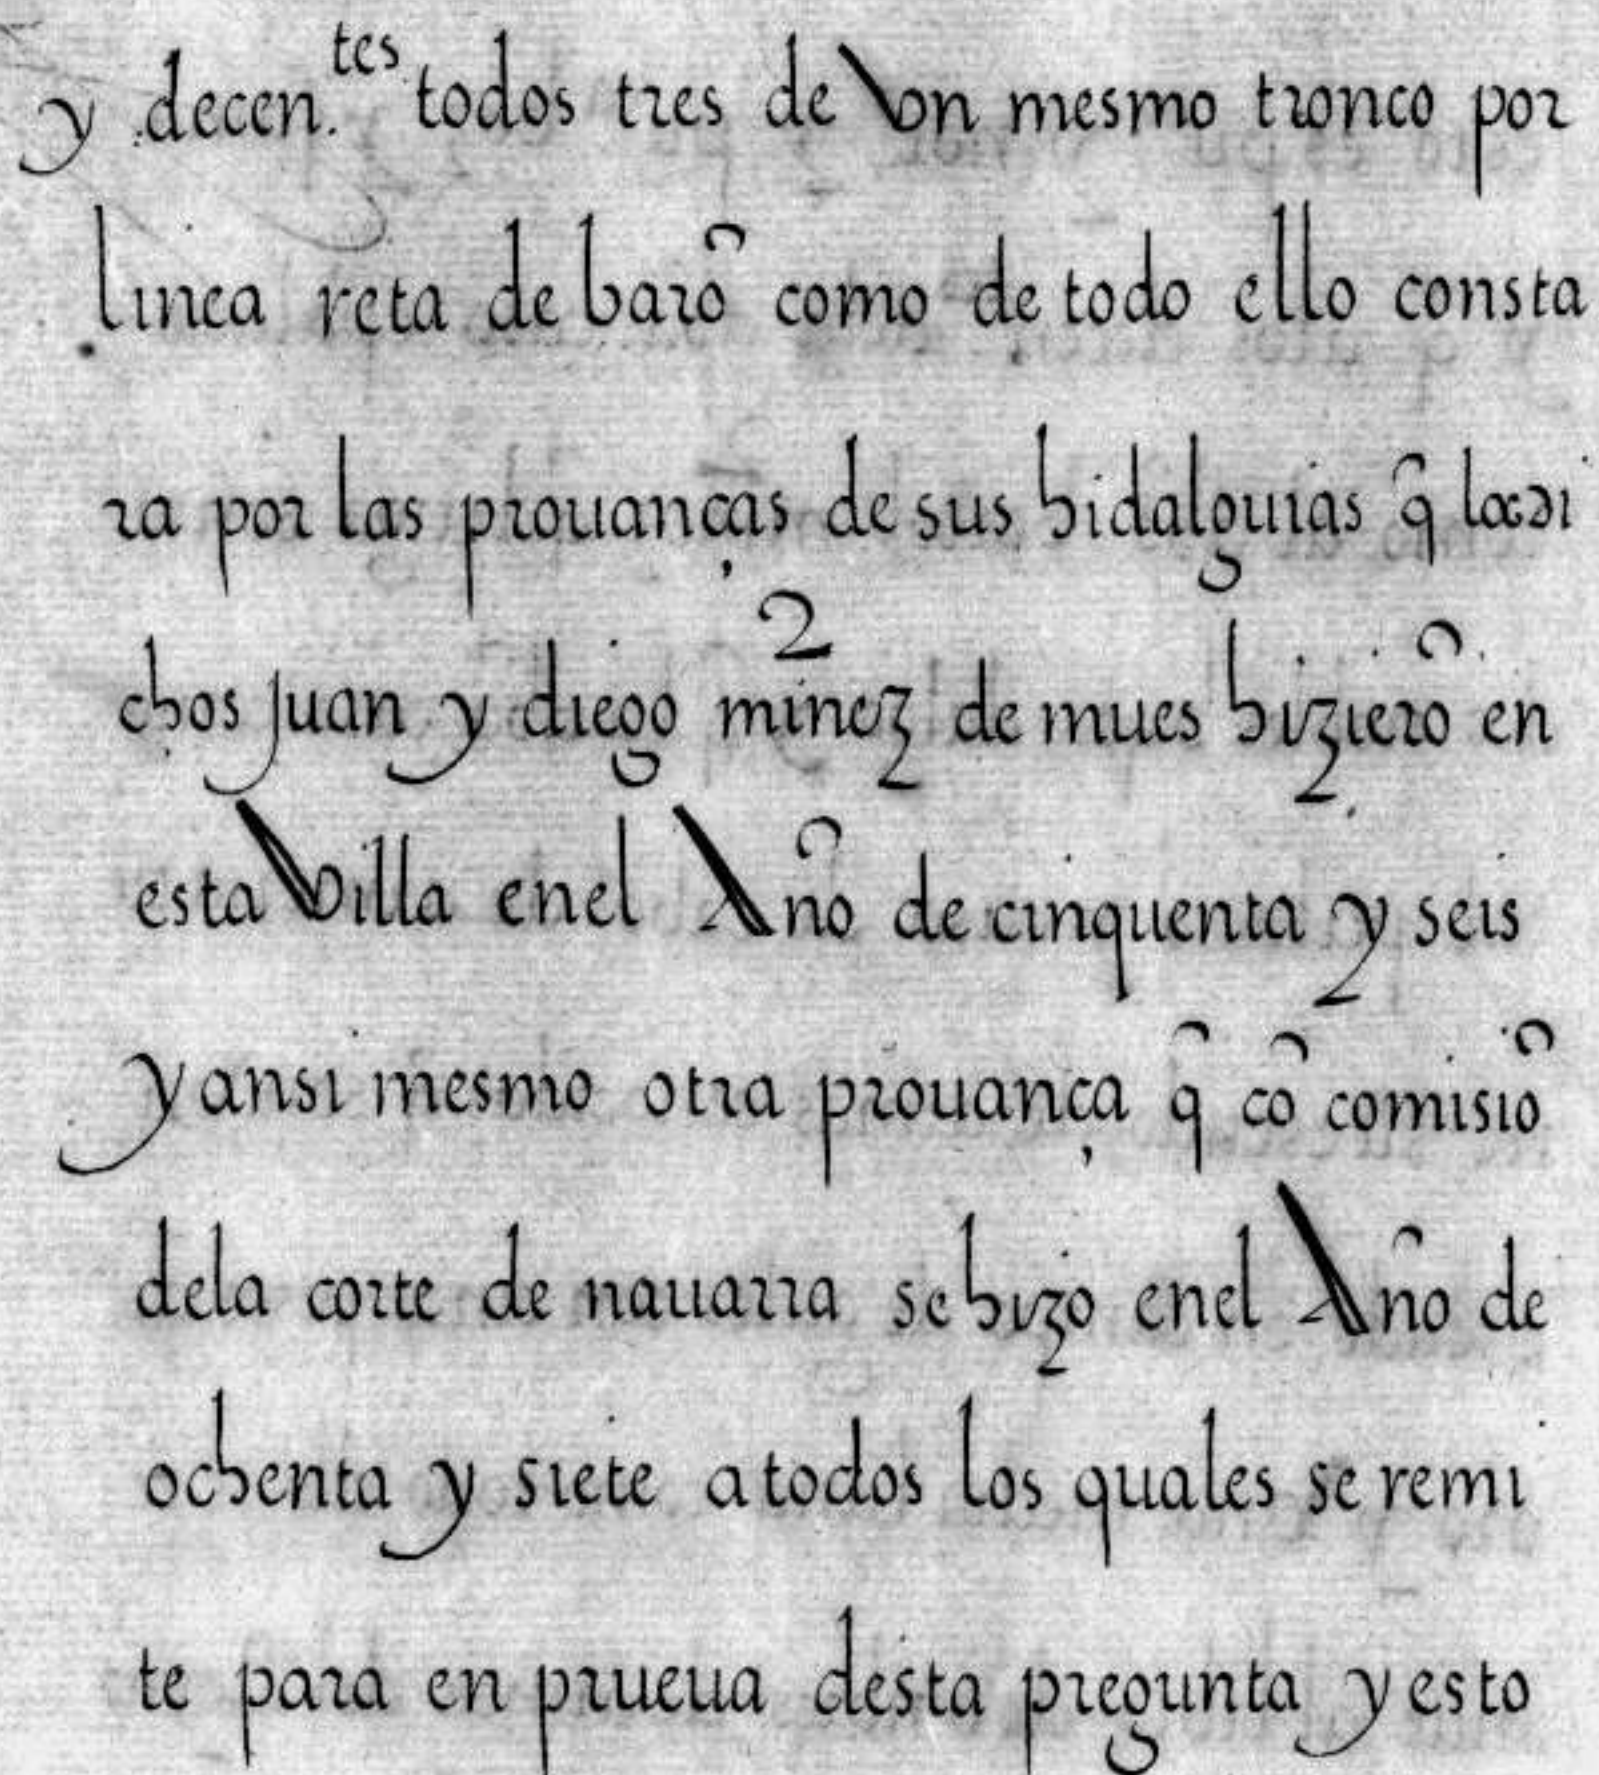 y decen.tes todos tres de vn mesmo tronco por
linea reta de barõ como de todo ello consta
ra por las prouanças de sus hidalguias q̃ los di
chos Juan y diego minez de mues hizierõ en
esta villa enel Año de cinquenta y seis
y ansi mesmo otra prouança q̃ cõ comisiõ
dela corte de nauarra se hizo enel Año de
ochenta y siete a todos los quales se remi
te para en prueua desta pregunta y esto